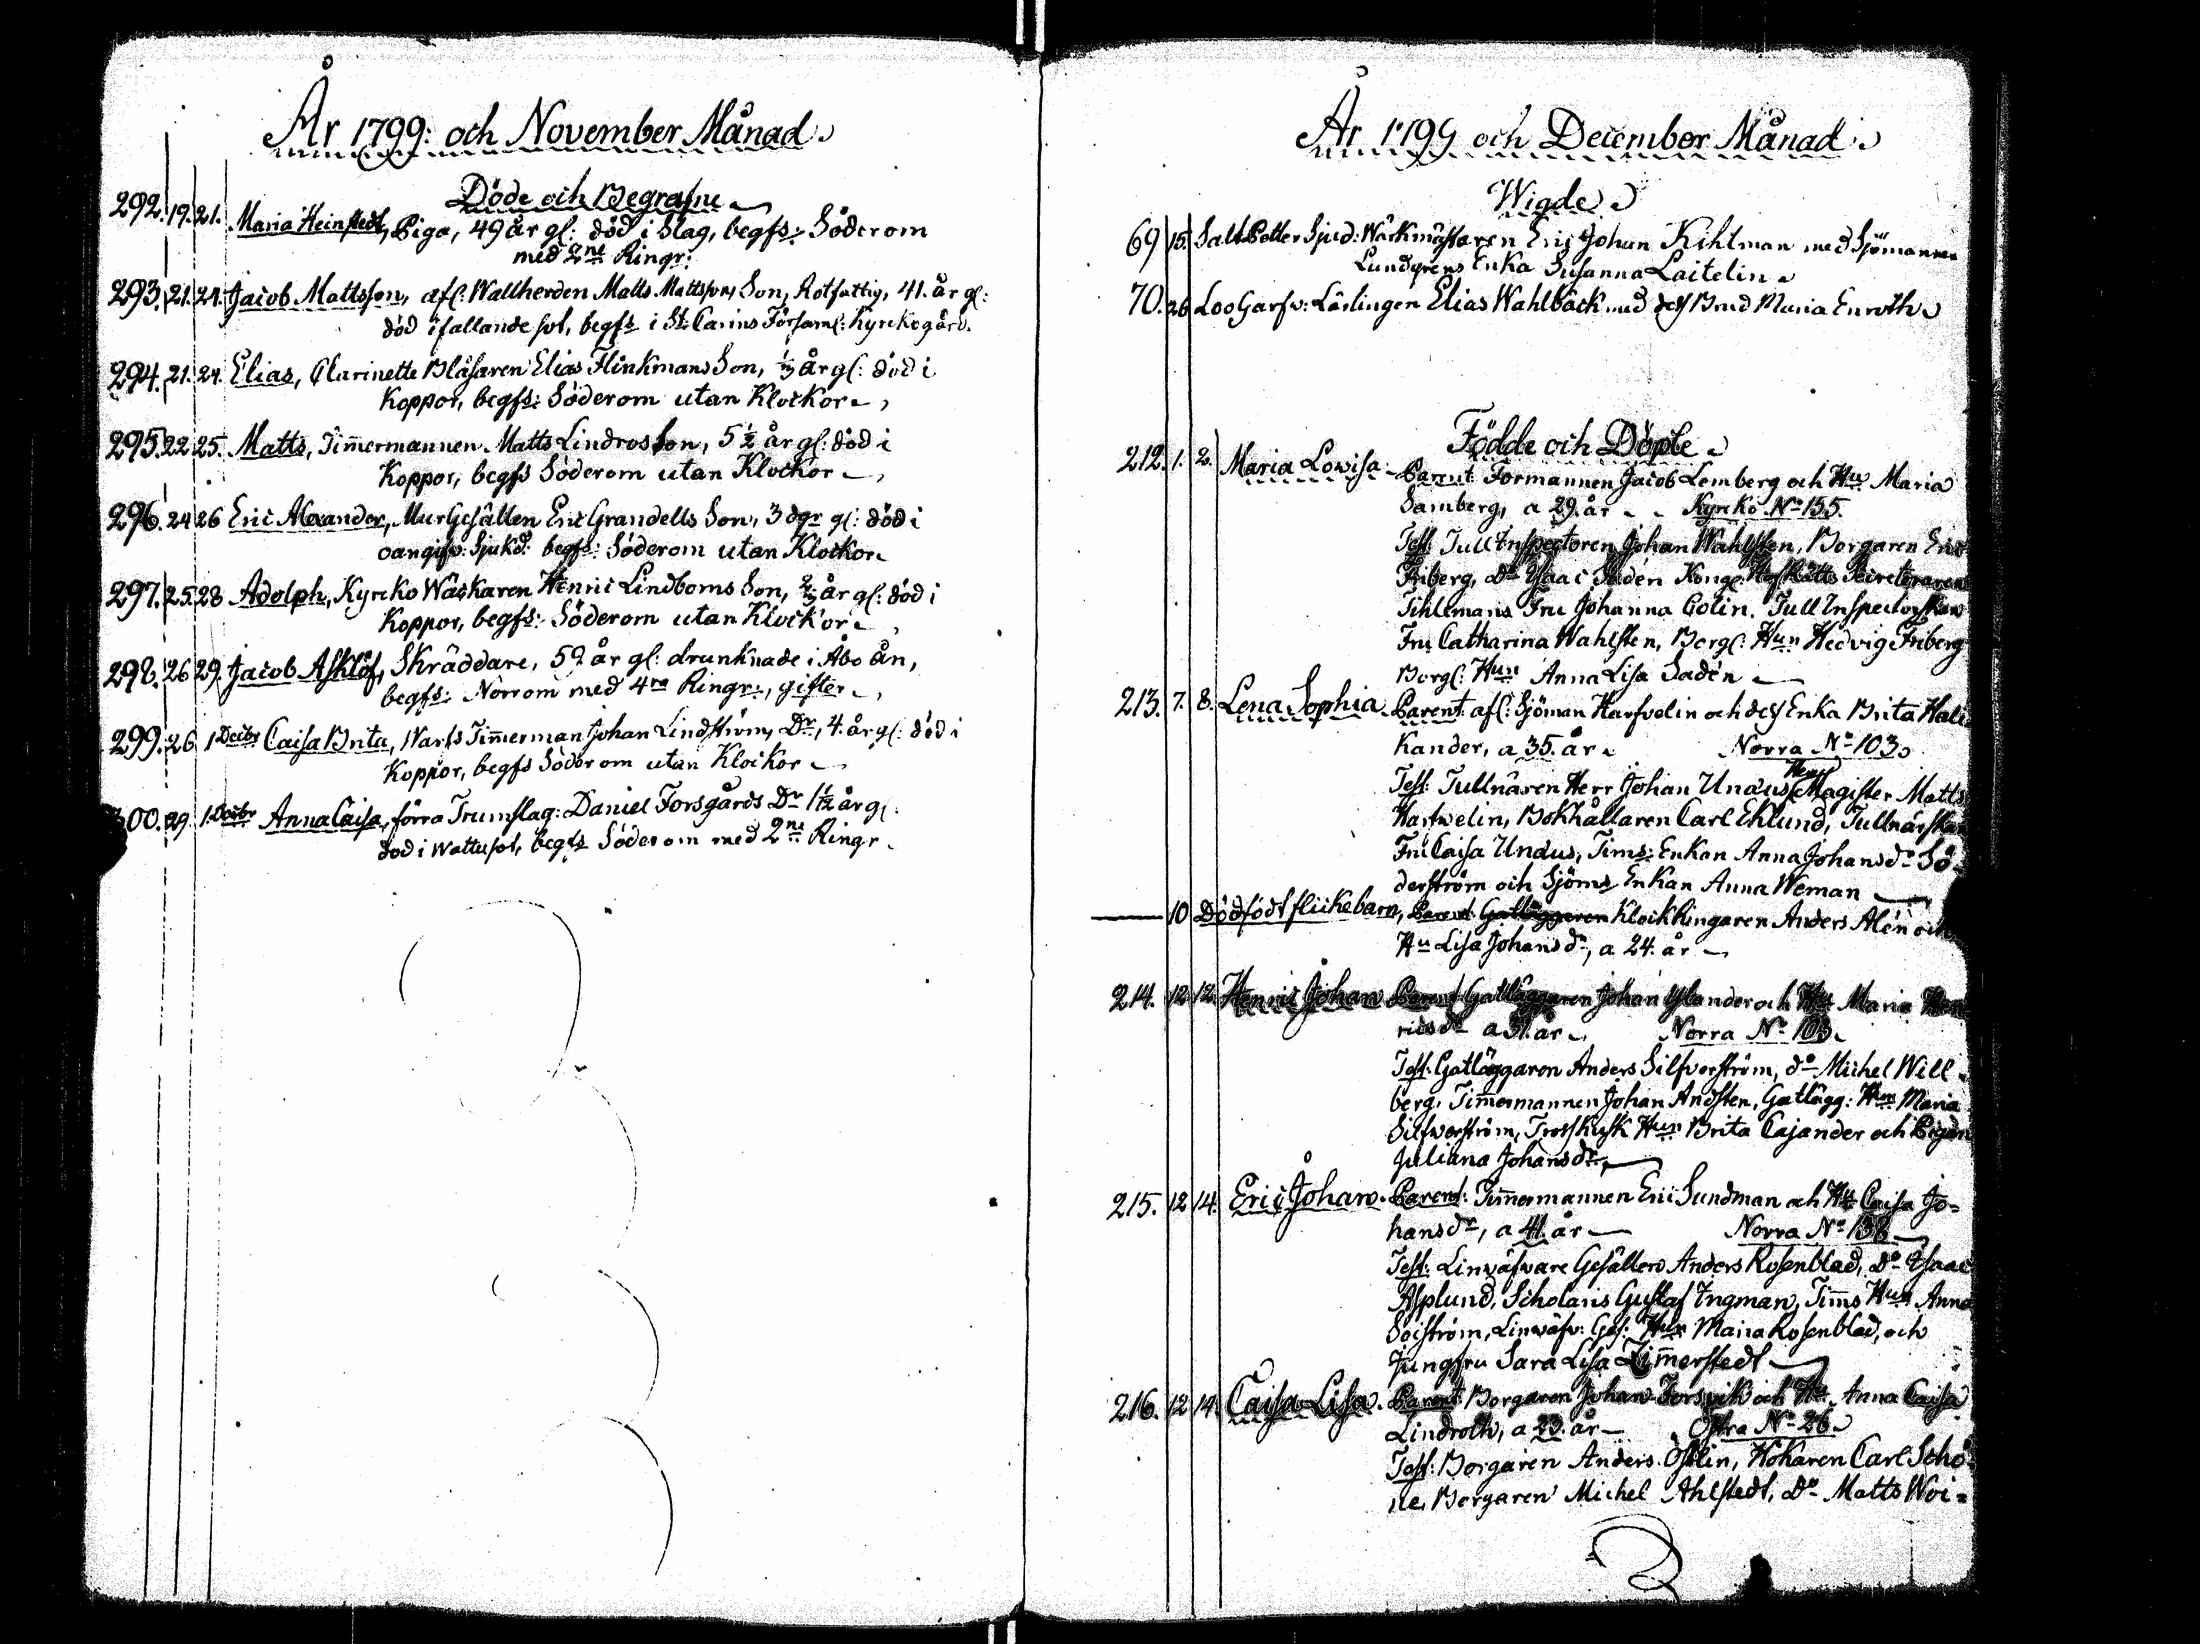 År 1799: och November Månad.
Döde och Begrafne
292. 19. 21. Maria Heinstedt, Piga, 49 år gl: död i Slag, begfs: Söderom
med 2ne Ringr:
293. 21. 24. Jacob Mattsson, afl: Wallherden Matts Mattssons Son, Rotfattig, 41. år gl:
död i fallande sot, begfs i St: Carins Församl: Kyrckogård.
294. 21. 24. Elias, Clarinette Blåsaren Elias Flinkmans Son, år gl: död i
Koppor, begfs: Söderom utan Klockor
295. 22 25. Matts, Tim̅ermannen Matts Lindros Son, 5 1/2 år gl: död i
Koppor, begfs Söderom utan Klockor
296. 24 26 Eric Alexander, MurGesällen Eric Grandells Son, 3 dgr gl: död i
oangifv: Sjukd: begfs: Söderom utan Klockor
297. 25 28 Adolph, Kyrcko Wäckaren Henric Lindboms Son, 2/3 år gl: död i
Koppor, begfs: Söderom utan Klockor
298. 26 29. Jacob Asklöf, Skräddare, 52 år gl: drunknade i Åbo Ån,
begfs: Norrom med 4ra Ringr:, gifter
299. 26 1 Decbr Caisa Brita, Warfs Tim̅erman Johan Lindströms Dr, 4. år gl: död i
Koppor, begfs Söderom utan Klockor
300. 29 1. Decbr Anna Caisa, förra Trumslag: Daniel Forsgårds Dr 1 1/2 år gl:
död i Wattusot, begfs Söderom med 2ne Ringr
År 1799 och December Månad.
Wigde
69 15. SaltPetter Sjud: Wärkmästaren Eric Johan Kihlman med Sjömannen
Lundgrens Enka Susanna Laitelin
70. 26 LooGarfv: Lärlingen Elias Wahlbäck med des Brud Maria Enroth
Födde och Döpte
212. 1. 2. Maria Lovisa Parent: Formannen Jacob Lemberg och Hu Maria
Samberg, a 29. år Kyrcko No 155.
Test: Tull Inspectoren Johan Wahlsten, Borgaren Eric
Friberg, Do Ysaac Sadén Kongl: HofRätts Secreteraren
Tihlemans Fru Johanna Colin. Tull Inspectorskan
Fru Catharina Wahlsten, Borgl: Hun Hedvig Friberg
Borgl: Hun Anna Lisa Sadén
213. 7. 8. Lena Sophia Parent: afl: Sjöman Harfvelin och des Enka Brita Hali
kander, a 35. år Norra No 103
Test: Tullnären Herr Johan Unaus, Herr Magister Matts
Hartwelin, Bokhållaren Carl Eklund, Tullnärskan
Fru Caisa Unaus, Tims: Enkan Anna Johansdr Sö-
derström och Sjöms Enkan Anna Weman
10 Dödfödt flickebarn, KlockRingaren Anders Alén och
Hu Lisa Johansdr, a 24. år
214. 12 12 Henric Johan Parent Gatläggaren Johan Ylander och Hu Maria Hen
ricsdr a 31. år Norra No 103
Test: Gatläggaren Anders Silfverström, do Michel Will-
berg, Tim̅ermannen Johan Andsten, Gatlägg: Hun Maria
Silfwerström, Hun Brita Cajander och Pigan
Juliana Johansdr
215. 12 14. Eric Johan. Parent: Tim̅ermannen Eric Sundman och Hu Caisa Jo-
hansdr, a 41. år Norra No 138
Test: Linwäfvare Gesällen Anders Rosenblad, Do Ysaac
Asplund, Scholaris Gustaf Ingman, Tim̅s Hun Anna
Linwäfv: Ges: Hun Maria Rosenblad, och
Jungfru Sara Lisa Tim̅erstedt
216. 12 14 Caisa Lisa. Parent: Borgaren Johan Forsvik och Hu Anna Caisa
Lindroth, a 23. år Östra No 26.
Test: Borgaren Anders Östlin, Hökaren Carl Schö-
ne, Borgaren Michel Ahlstedt, Do Matts Woi-